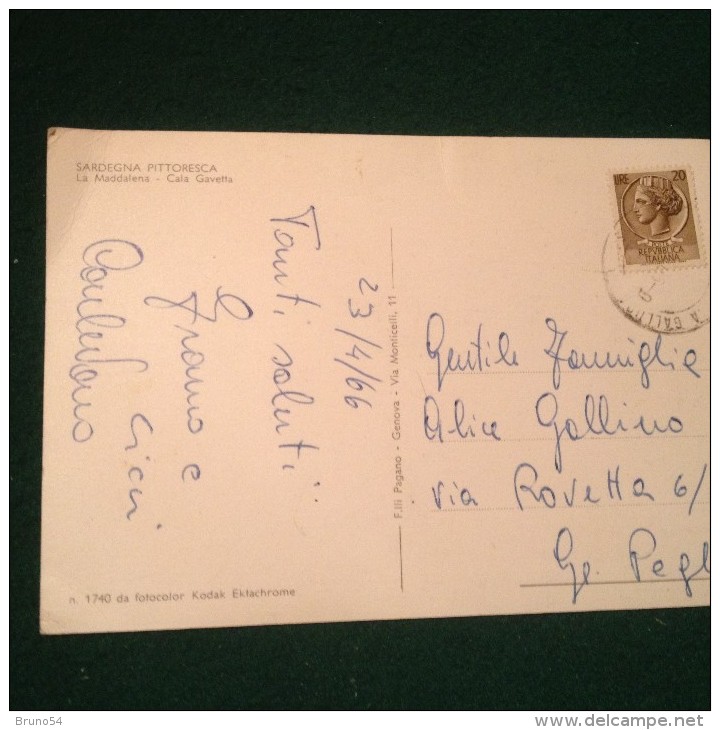 SARDEGNA PITTORESCA
La Maddalena - Cala Gavetta
23/4/66
Tanti saluti
Franco e Cicci
LIRE 20
POSTE
REPVBBLICA
ITALIANA
F.lli Pagano - Genova - Via Monticelli, 11
Gentile Famiglia
Alice Gallino
via Rovetta 6/
Ge. Pegl
n. 1740 da fotocolor Kodak Ektachrome
Bruno54
delcampe.net